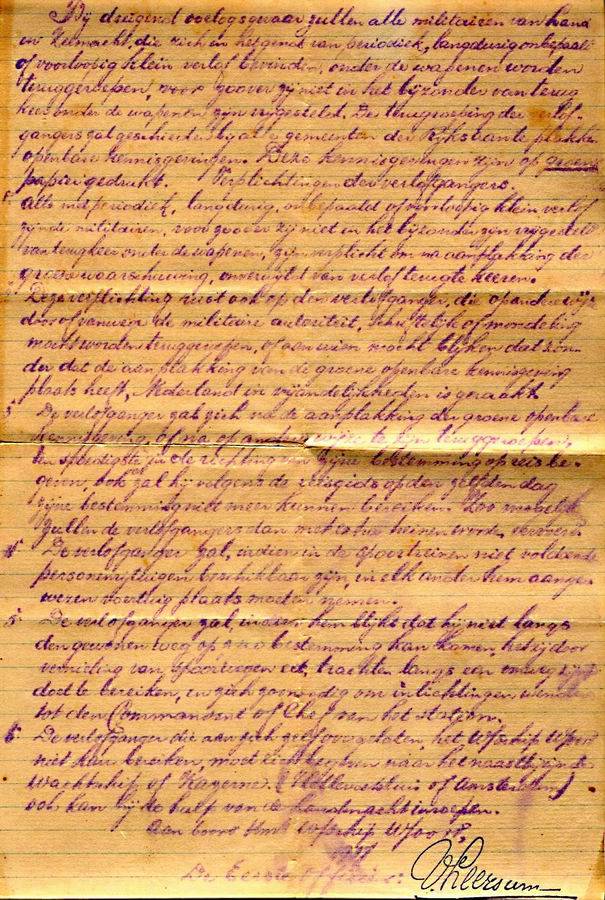 Bij dreigend oorlogsgevaar zullen alle militairen van land
en Zeemacht, die zich in het genot van periodiek, langdurig onbepaald
of voorloopig klein verlof bevinden, onder de wapenen worden
teruggeroepen, voor zoover zij niet in het bijzonder van terug
keer onder de wapenen zijn vrijgesteld. De terugroeping der verlof-
gangers zal geschieden bij alle gemeenten des Rijks aante plakken
openbare kennisgevingen. Deze kennisgevingen zijn op groen
papier gedrukt. Verplichtingen der verlofgangers.
Alle met periodiek, langdurig, onbepaald of voorloopig klein verlof
zijnde militairen, voor zoover zij niet in het bijzonder zijn vrijgesteld
van terugkeer onder de wapenen, zijn verplicht om na aanplakking der
groene waarschuwing, onverwijld van verlof terug te keeren.
Deze verplichting rust ook op den verlofganger, die op andere wijze
door of vanwege de militaire autoriteit, schriftelijk of mondeling
mocht worden teruggeroepen, of aan wien mocht blijken dat zon-
der dat de aanplakking van de groene openbare kennisgeving
plaats heeft, Nederland in vijandelijkheden is geraakt.
3 De verlofganger zal zich na de aanplakking der groene openbare
kennisgeving, of na op andere wijze te zijn teruggeroepen,
ten spoedigste in de richting van zijne bestemming op reis be-
geven, ook zal hij volgens de reisgids op den zelfden dag
zijne bestemming niet meer kunnen bereiken. Zoo mogelijk
zullen de verlofgangers dan met extra treinen worden vervoerd.
4 De verlofganger zal, indien in de spoortreinen niet voldoende
personenrijtuigen beschikbaar zijn, in elk ander hem aange-
wezen voertuig plaats moeten nemen.
5 De verlofganger zal, indien hem blijkt dat hij niet langs
den gewonen weg op zijne bestemming kan komen, hetzij door
vernieling van spoorwegen enz, trachten langs een omweg zijn
doel te bereiken, en zich zoo noodig om inlichtingen wenden
tot den Commandant of Chef van het station.
6 De verlofganger die aan zich zelf overgelaten, het
niet kan bereiken, moet zich begeven naar het naastbijzijnde
wachtschip of Kazerne. (Hellevoetsluis of Amsterdam)
ook kan hij de hulp van de landmacht inroepen.
Aan boord Hm
De Eerste Officier: